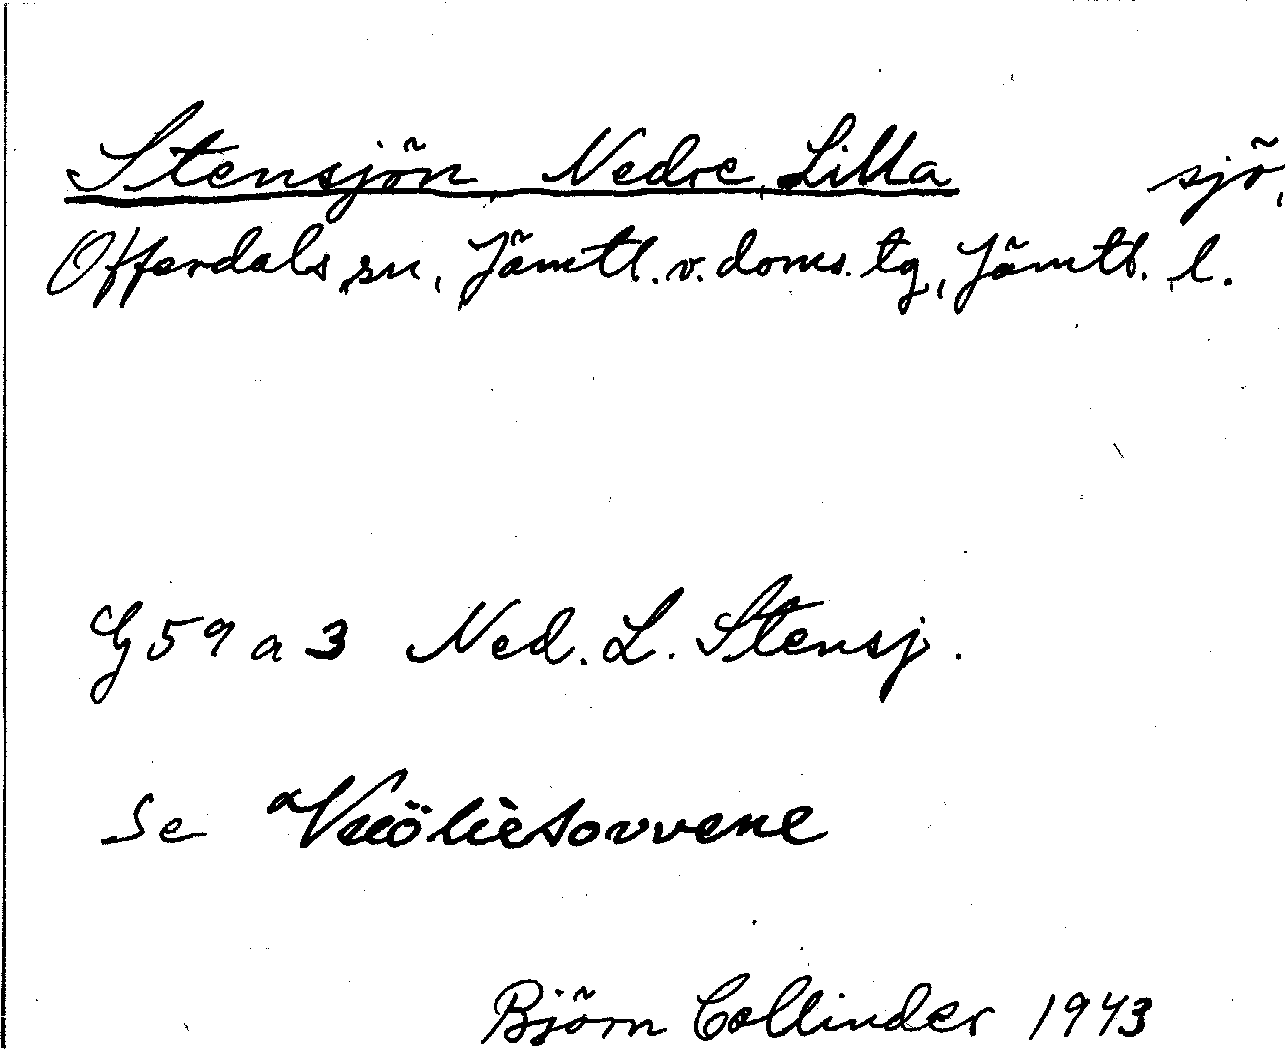 Stensjön, Nedre, Lilla sjö,
Offerdals sn, Jämtl. v. doms. tg, Jämtl. l.
G 59 a 3 Ned. L. Stensj.
Se
Björn Collinder 1943